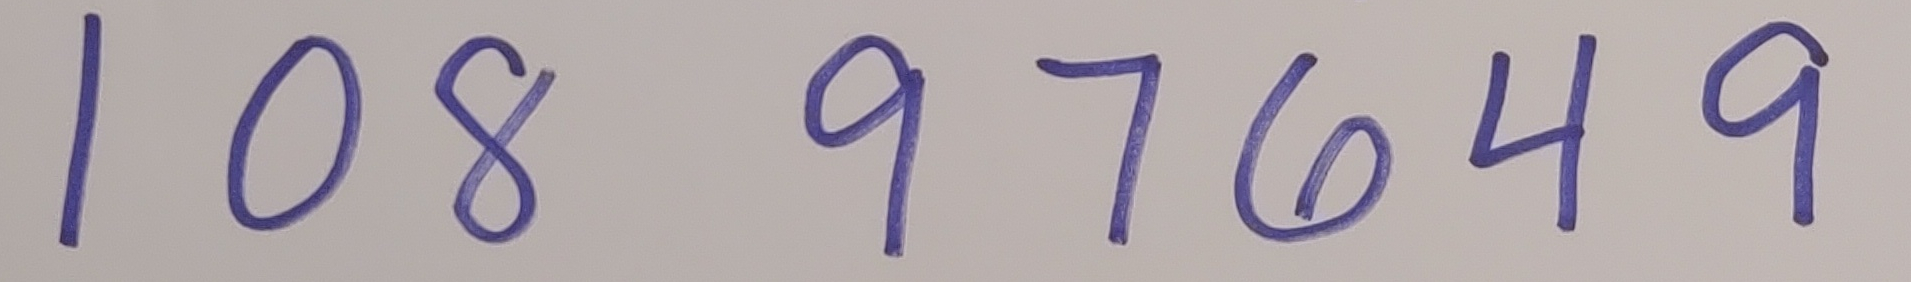 108 97649